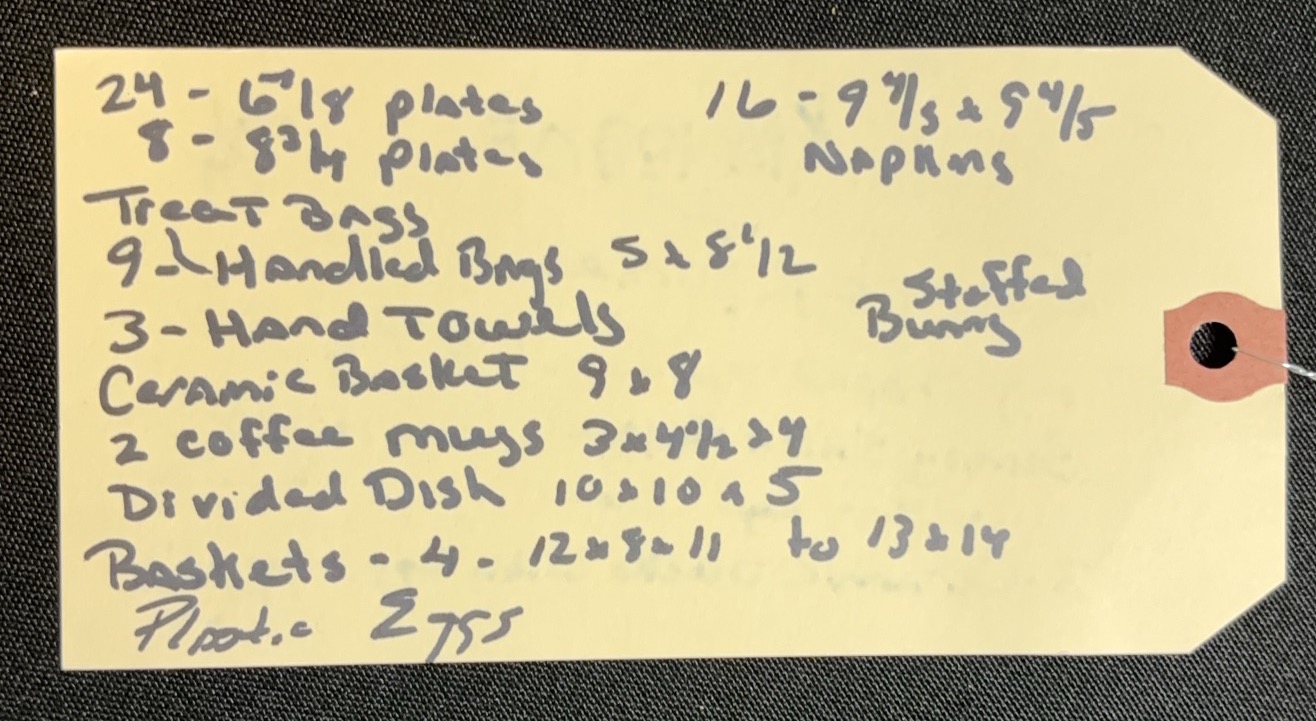 24 - 6 7/8 plates
8 - 8 3/4 plates
16 - 9 4/5 x 9 4/5
Napkins
Treat Bags
9 - Handled Bags 5 x 8 1/2
3 - Hand Towels
Stuffed
Bunny
Ceramic Basket 9 x 8
2 coffee mugs 3 x 4 1/2 x 4
Divided Dish 10 x 10 x 5
Baskets - 4 - 12 x 8 x 11 to 13 x 14
Plastic Eggs